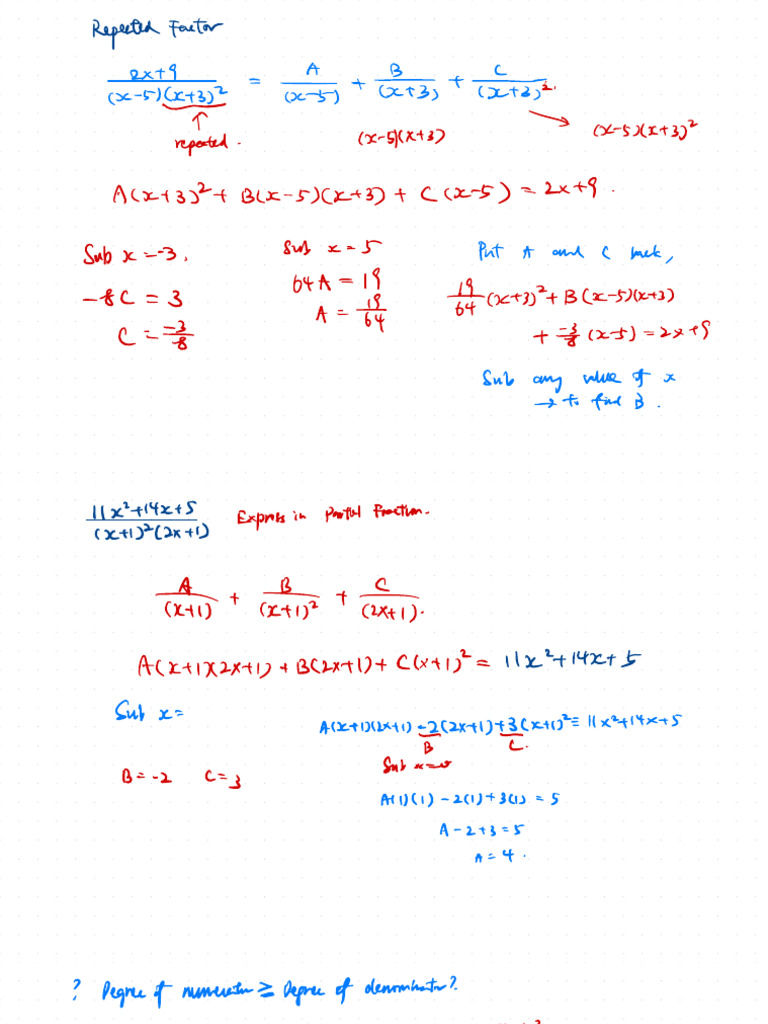 Repeated Factor
2x+9 / (x-5)(x+3)² = A / (x-5) + B / (x+3) + C / (x+3)².
repeated.
(x-5)(x+3)
(x-5)(x+3)²
A(x+3)² + B(x-5)(x+3) + C(x-5) = 2x+9.
Sub x=-3,
-8C = 3
C = -3/8
Sub x=5
64A = 19
A = 19/64
Put A and C back,
19/64 (x+3)² + B(x-5)(x+3)
+ -3/8 (x-5) = 2x+9
Sub any value of x
→ to find B.
11x²+14x+5 / (x+1)²(2x+1) Express in Partial Fraction.
A / (x+1) + B / (x+1)² + C / (2x+1).
A(x+1)(2x+1) + B(2x+1) + C(x+1)² = 11x²+14x+5
Sub x=
B=-2 C=3
A(x+1)(2x+1) -2(2x+1) +3(x+1)² ≡ 11x²+14x+5
B C.
Sub x=0
A(1)(1) - 2(1) + 3(1) = 5
A-2+3=5
A=4.
? Degree of numerator ≥ Degree of denominator?